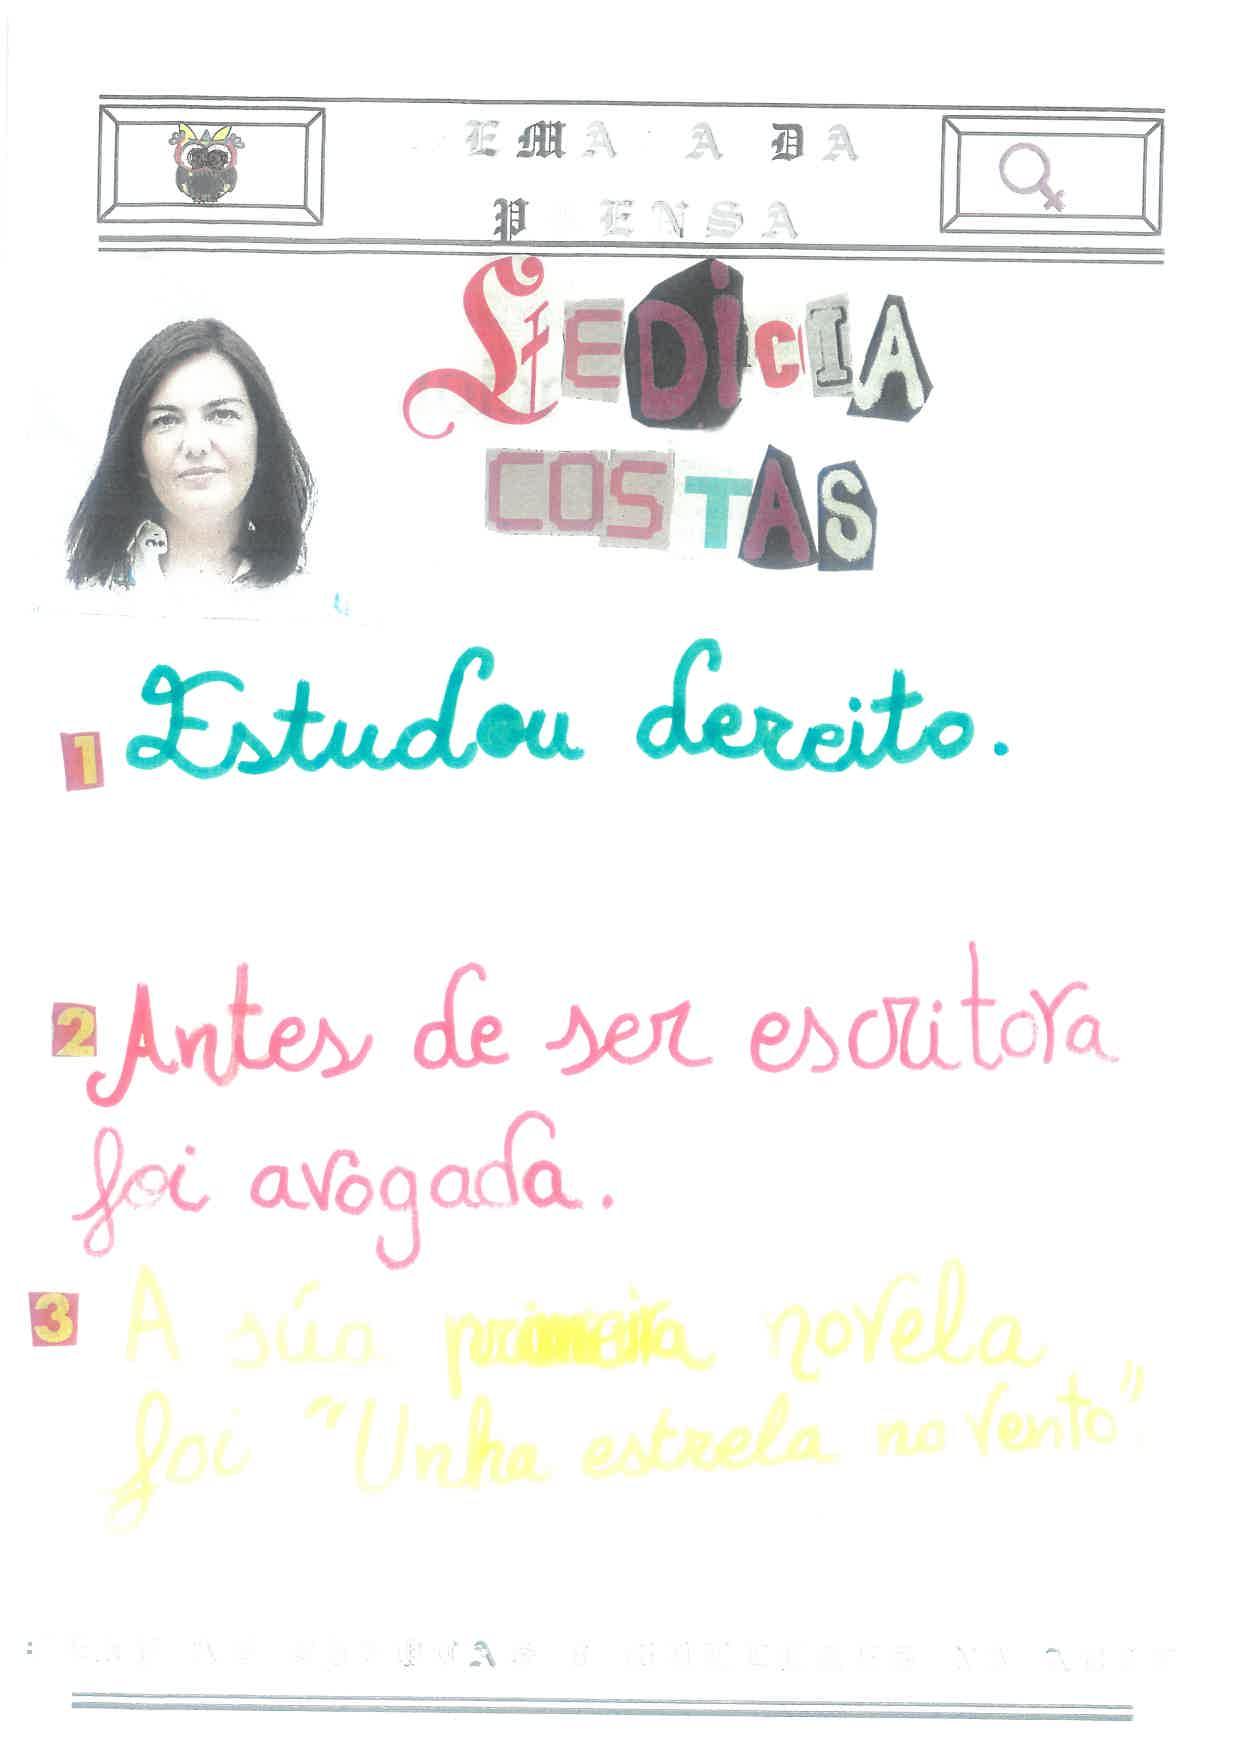 EMA A DA
P ENSA
LEDICIA
COSTAS
1 Estudou dereito.
2 Antes de ser escritora
foi avogada.
3 A súa primeira novela
foi "Unha estrela no vento".